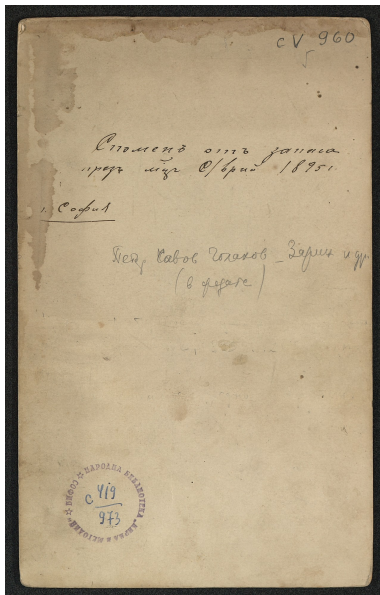 C V 960
Споменъ отъ запаса
презъ м-ц О/врий 1895 г.
г. София
Савов _ Зарин и др.
(в средата)
НАРОДНА БИБЛИОТЕКА „КИРИЛ И МЕТОДИЙ“ СОФИЯ
C 419
973